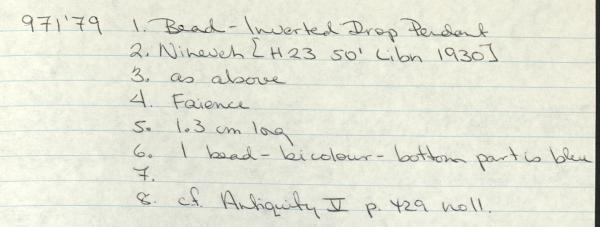 971'79 1. Bead - Inverted Drop Pendant
2. Nineveh [H23 50' Libn 1930]
3. as above
4. Faience
5. 1.3 cm long
6. 1 bead - bicolour - bottom part is blue
7.
8. cf. Antiquity V p. 429 no 11.